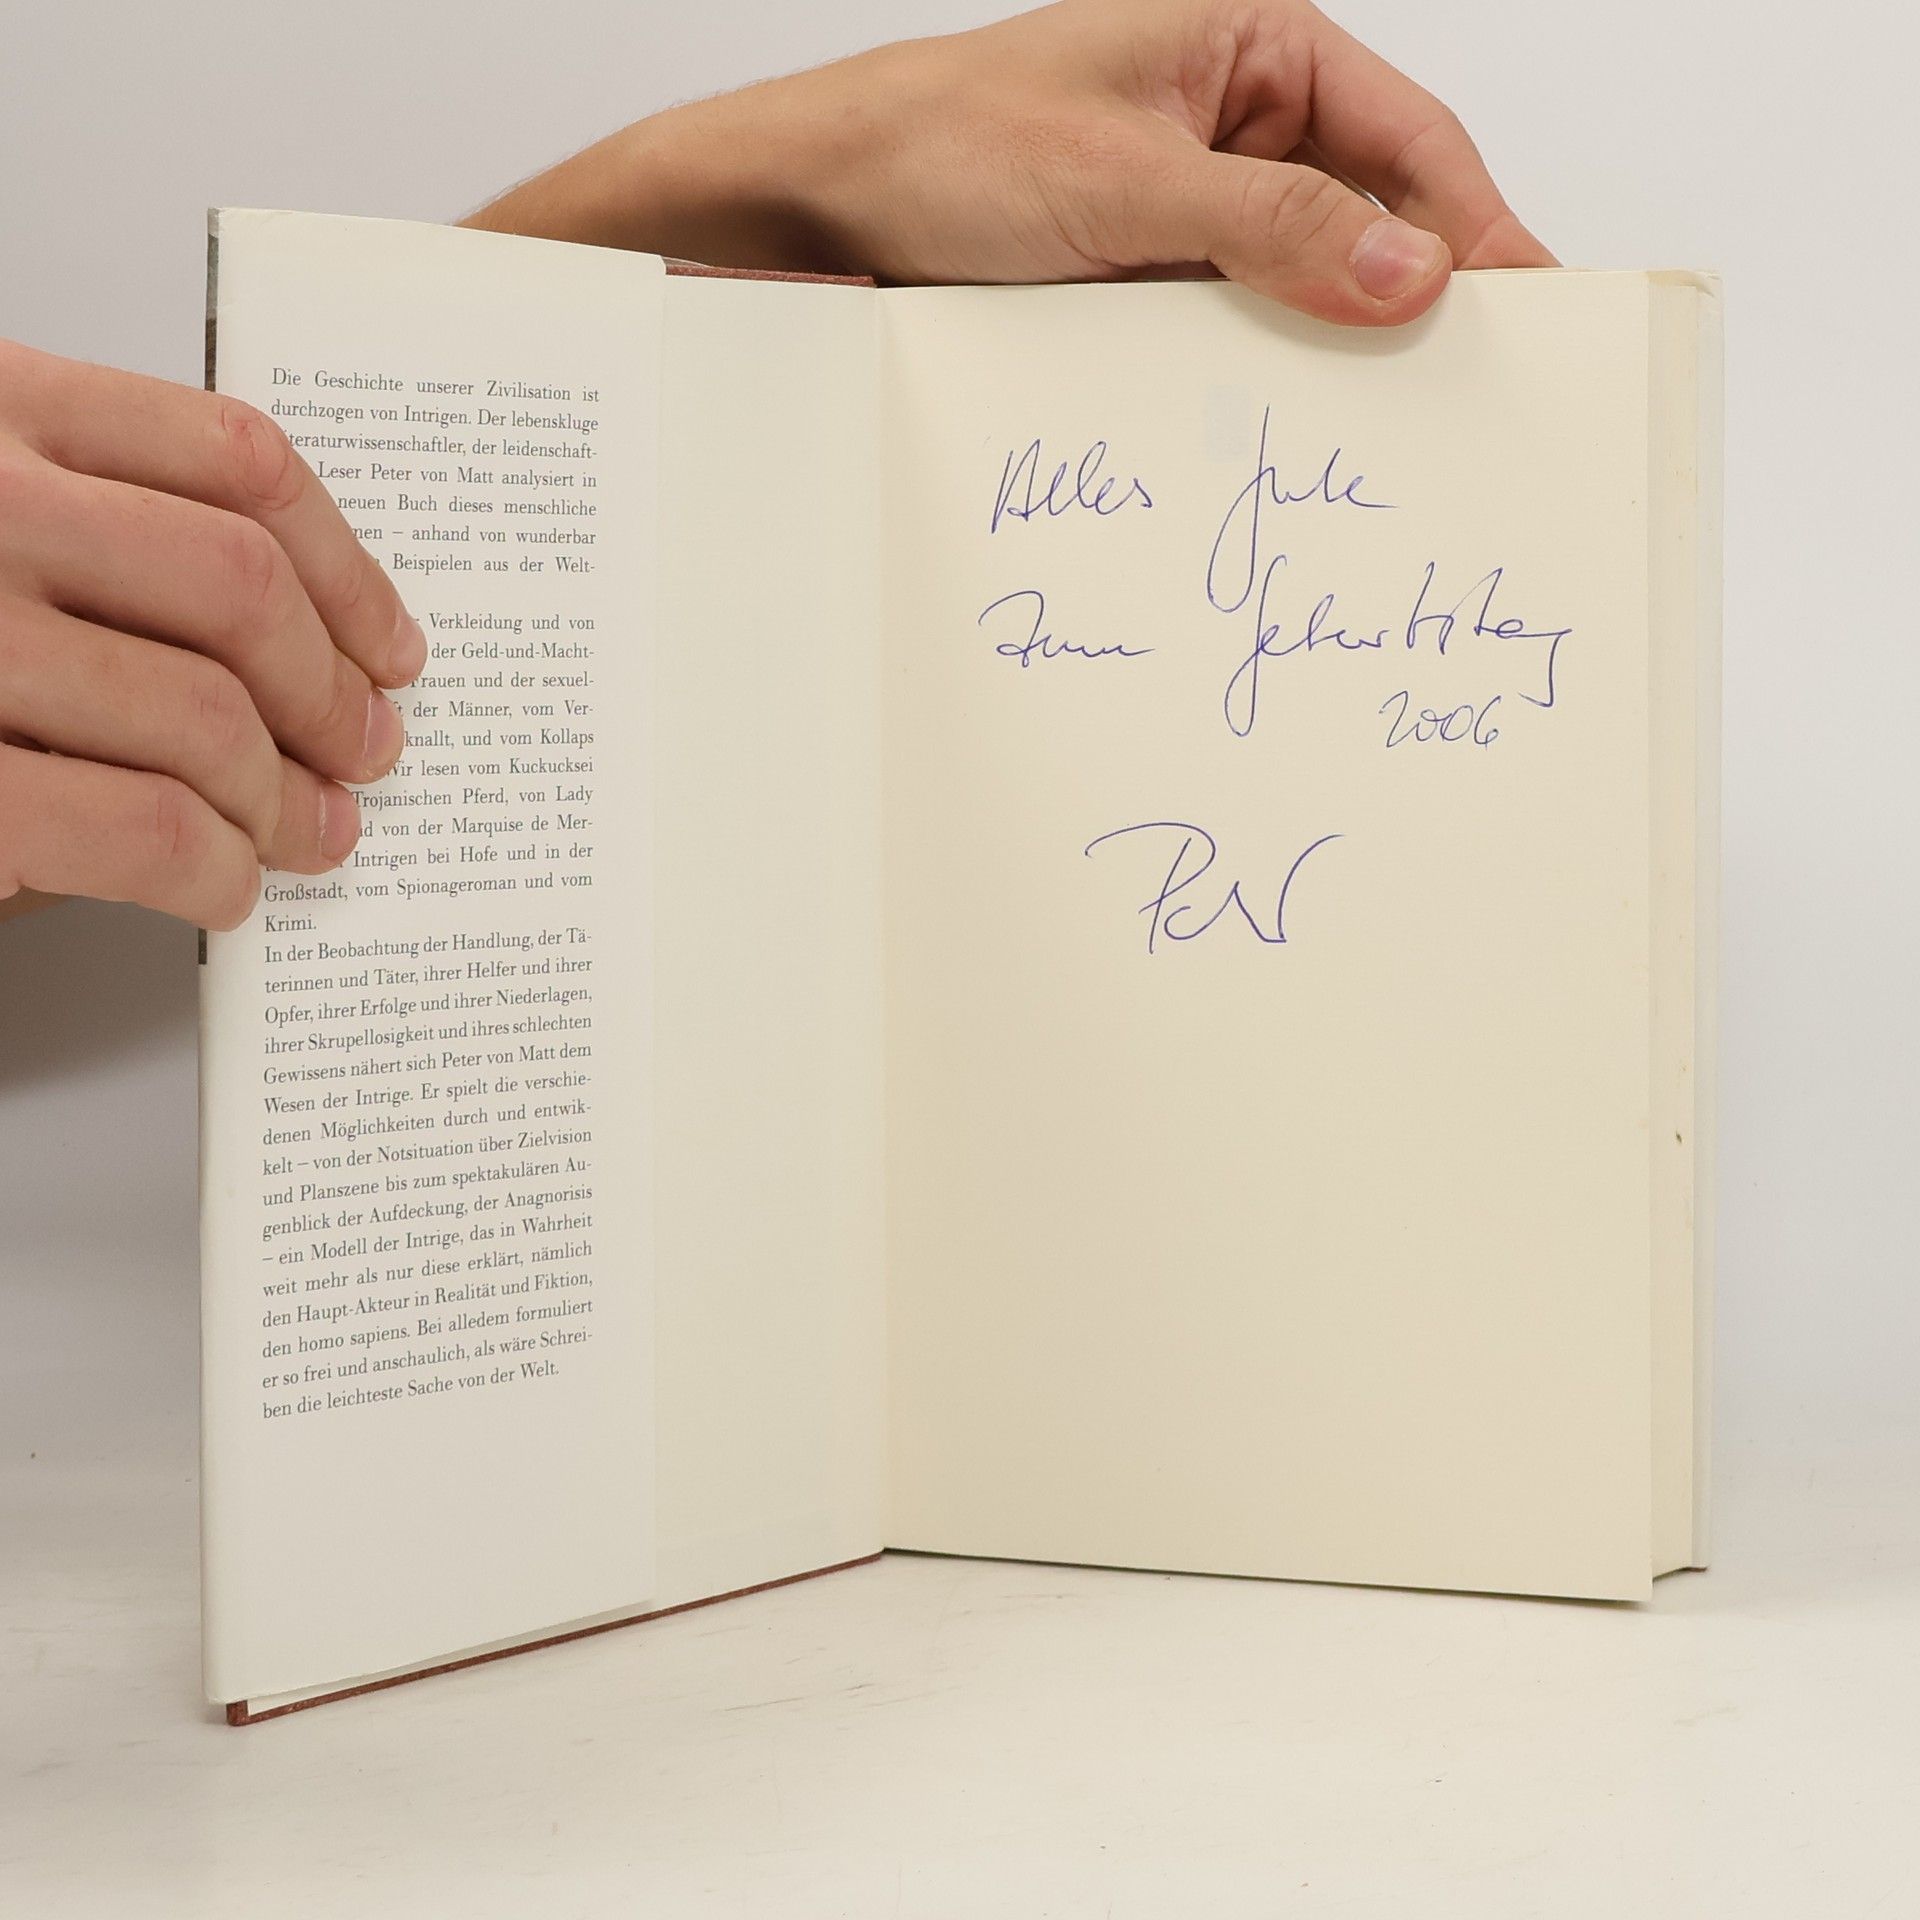 Die Geschichte unserer Zivilisation ist
durchzogen von Intrigen. Der lebenskluge
teraturwissenschaftler, der leidenschaft-
Leser Peter von Matt analysiert in
neuen Buch dieses menschliche
nen – anhand von wunderbar
Beispielen aus der Welt-
Verkleidung und von
der Geld-und-Macht-
Frauen und der sexuel-
der Männer, vom Ver-
knallt, und vom Kollaps
Wir lesen vom Kuckucksei
Trojanischen Pferd, von Lady
von der Marquise de Mer-
Intrigen bei Hofe und in der
Großstadt, vom Spionageroman und vom
Krimi.
In der Beobachtung der Handlung, der Tä-
terinnen und Täter, ihrer Helfer und ihrer
Opfer, ihrer Erfolge und ihrer Niederlagen,
ihrer Skrupellosigkeit und ihres schlechten
Gewissens nähert sich Peter von Matt dem
Wesen der Intrige. Er spielt die verschie-
denen Möglichkeiten durch und entwik-
kelt – von der Notsituation über Zielvision
und Planszene bis zum spektakulären Au-
genblick der Aufdeckung, der Anagnorisis
– ein Modell der Intrige, das in Wahrheit
weit mehr als nur diese erklärt, nämlich
den Haupt-Akteur in Realität und Fiktion,
den homo sapiens. Bei alledem formuliert
er so frei und anschaulich, als wäre Schrei-
ben die leichteste Sache von der Welt.
Alles Gute
zum Geburtstag
2006